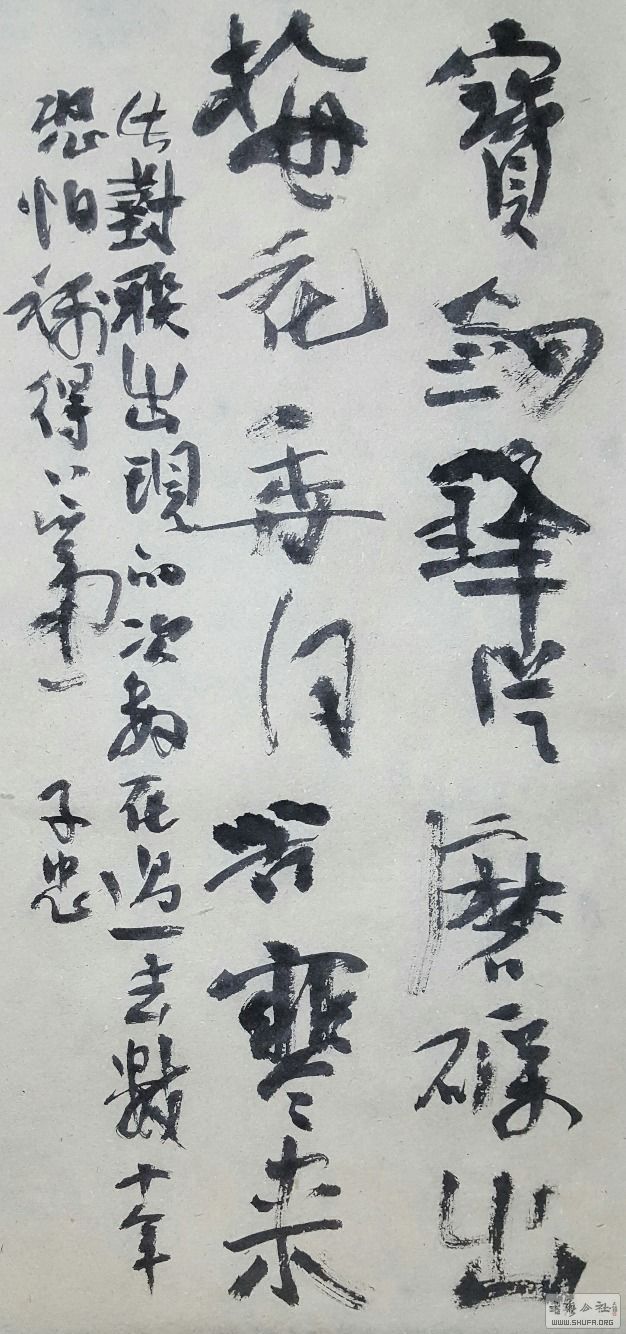 寶劍鋒從磨礪出
梅花香自苦寒来
此對聯出現的次數在過去數十年
恐怕稱得上第一
子忠
書法公社
WWW.SHUFA.ORG